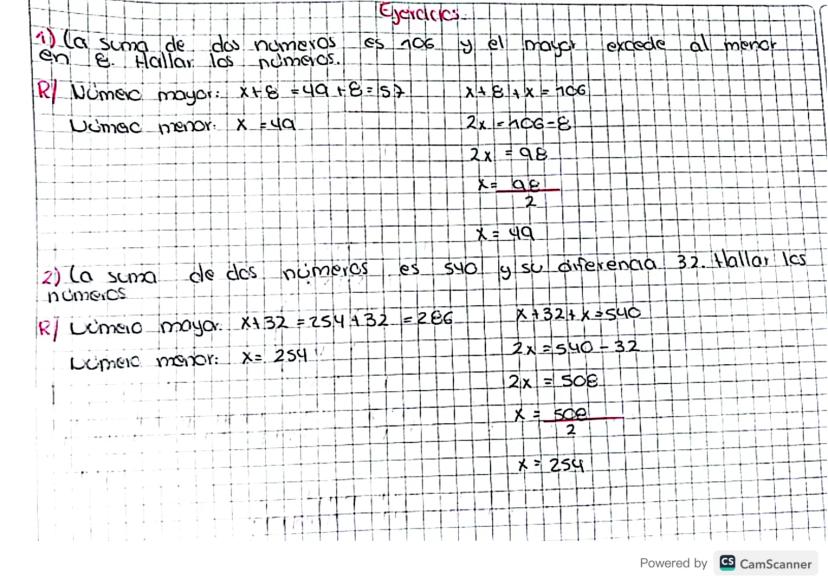 Ejercicios.
1) La suma de dos números es 106 y el mayor excede al menor
en 8. Hallar los números.
R/ Número mayor: x+8 = 49+8 = 57
x+8+x = 106
Número menor: x = 49
2x = 106-8
2x = 98
x = 98
2
x = 49
2) La suma de dos números es 540 y su diferencia 32. Hallar los
números
R/ Número mayor: x+32 = 254+32 = 286
x+32+x = 540
Número menor: x = 254
2x = 540-32
2x = 508
x = 508
2
x = 254
Powered by CS CamScanner